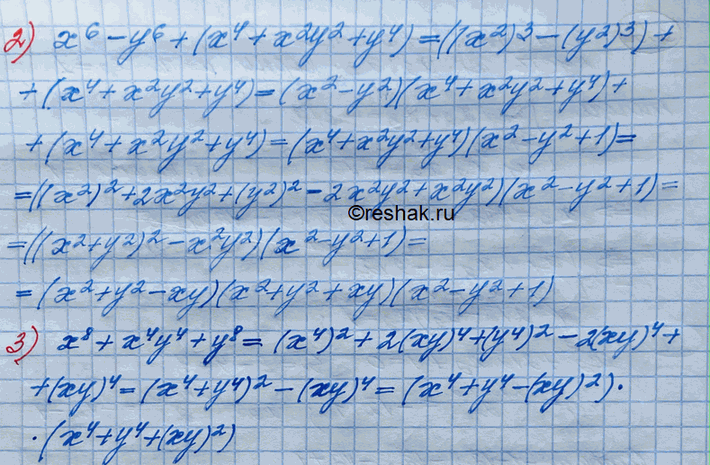 2) x⁶ - y⁶ + (x⁴ + x²y² + y⁴) = ((x²)³ - (y²)³) +
+ (x⁴ + x²y² + y⁴) = (x² - y²)(x⁴ + x²y² + y⁴) +
+ (x⁴ + x²y² + y⁴) = (x⁴ + x²y² + y⁴)(x² - y² + 1) =
= ((x²)² + 2x²y² + (y²)² - 2x²y² + x²y²)(x² - y² + 1) =
©reshak.ru
= ((x² + y²)² - x²y²)(x² - y² + 1) =
= (x² + y² - xy)(x² + y² + xy)(x² - y² + 1)
3) x⁸ + x⁴y⁴ + y⁸ = (x⁴)² + 2(xy)⁴ + (y⁴)² - 2(xy)⁴ +
+ (xy)⁴ = (x⁴ + y⁴)² - (xy)⁴ = (x⁴ + y⁴ - (xy)²) ·
· (x⁴ + y⁴ + (xy)²)